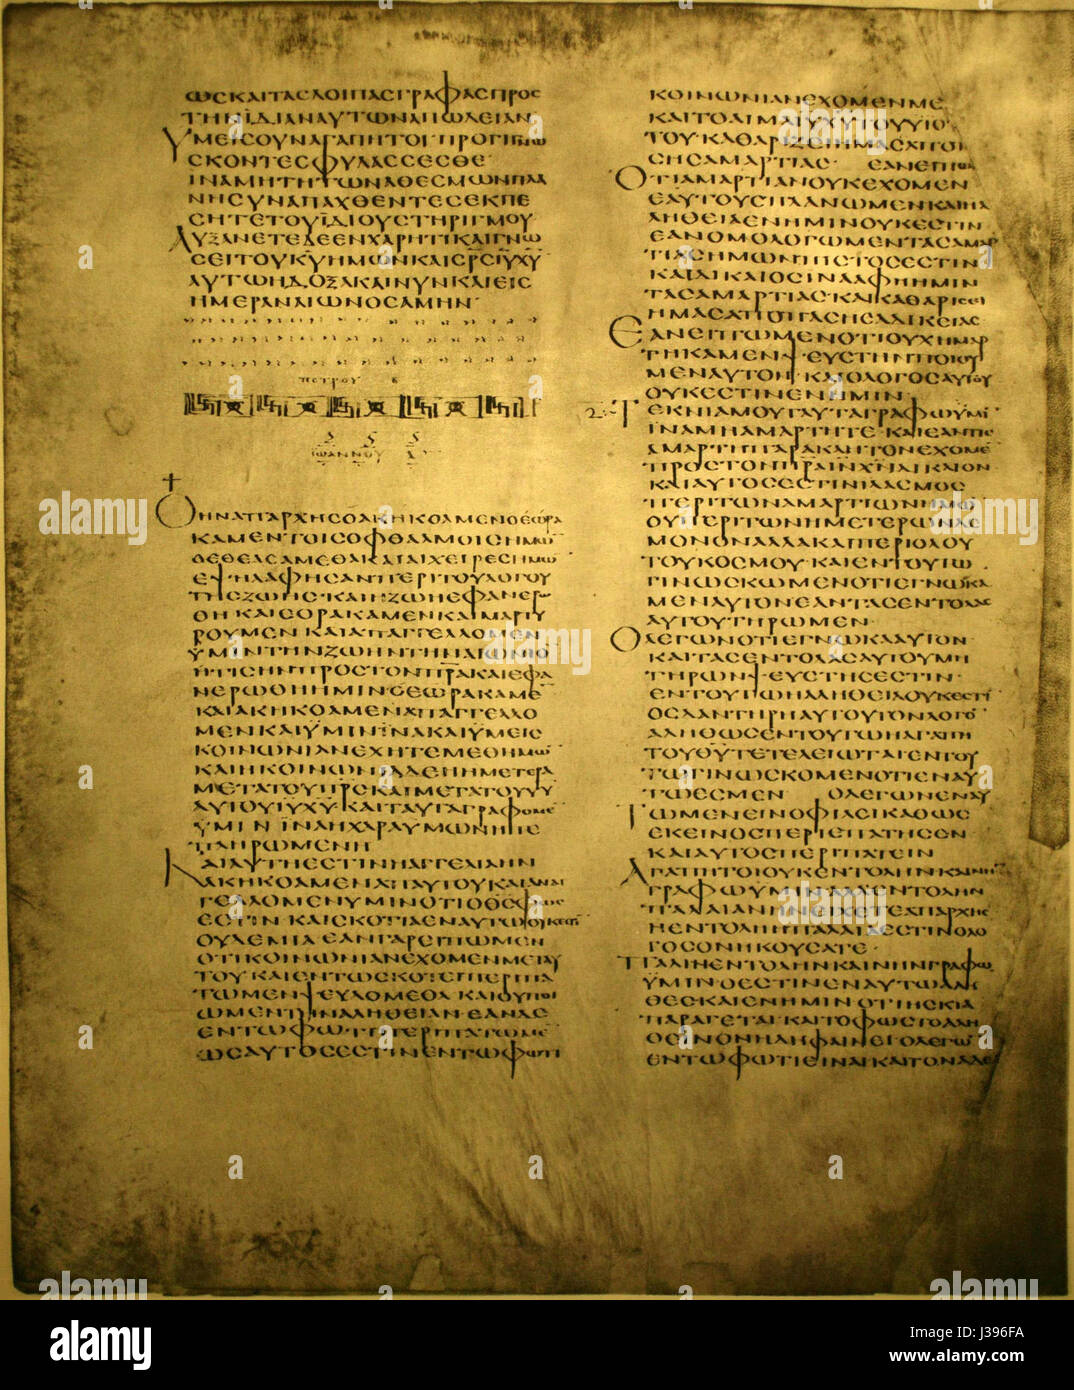 ΩϹΚΑΙΤΑϹΛΟΙΠΑϹΓΡΑΦΑϹΠΡΟϹ
ΤΗΝΪΔΙΑΝΑΥΤΩΝΑΠΩΛΕΙΑΝ
ΥΜΕΙϹΟΥΝΑΓΑΠΗΤΟΙ ΠΡΟΓΙΝΩ
ϹΚΟΝΤΕϹΦΥΛΑϹϹΕϹΘΕ
ΙΝΑΜΗΤΗΤΩΝΑΘΕϹΜΩΝΠΛΑ
ΝΗϹΥΝΑΠΑΧΘΕΝΤΕϹΕΚΠΕ
ϹΗΤΕΤΟΥΪΔΙΟΥϹΤΗΡΙΓΜΟΥ
ΑΥΞΑΝΕΤΕΔΕΕΝΧΑΡΗΤΙΚΑΙΓΝΩ
ϹΕΙΤΟΥΚΥΗΜΩΝΚΑΙϹΡϹΙΥΧΥ
ΑΥΤΩΗΔΟΞΑΚΑΙΝΥΝΚΑΙΕΙϹ
ΗΜΕΡΑΝΑΙΩΝΟϹΑΜΗΝ·
ΠΕΤΡΟΥ Β
ΙΩΑΝΝΟΥ Α
ΟΗΝΑΠΑΡΧΗϹΟΑΚΗΚΟΑΜΕΝΟΕΩΡΑ
ΚΑΜΕΝΤΟΙϹΟΦΘΑΛΜΟΙϹΗΜΩ̅
ΟΕΘΕΑϹΑΜΕΘΑΚΑΙΑΙΧΕΙΡΕϹΗΜΩ
ΕΨΗΛΑΦΗϹΑΝΠΕΡΙΤΟΥΛΟΓΟΥ
ΤΗϹΖΩΗϹ·ΚΑΙΗΖΩΗΕΦΑΝΕΡΩ
ΘΗ ΚΑΙΕΟΡΑΚΑΜΕΝΚΑΙΜΑΡΤΥ
ΡΟΥΜΕΝ ΚΑΙΑΠΑΓΓΕΛΛΟΜΕΝ
ΥΜΙΝΤΗΝΖΩΗΝΤΗΝΑΙΩΝΙΟ̅
ΗΤΙϹΗΝΠΡΟϹΤΟΝΠΡΑΚΑΙΕΦΑ
ΝΕΡΩΘΗΗΜΙΝ·ΟΕΩΡΑΚΑΜΕ̅
ΚΑΙΑΚΗΚΟΑΜΕΝΑΠΑΓΓΕΛΛΟ
ΜΕΝΚΑΙΫΜΙΝ·ΪΝΑΚΑΙΫΜΕΙϹ
ΚΟΙΝΩΝΙΑΝΕΧΗΤΕΜΕΘΗΜΩ̅
ΚΑΙΗΚΟΙΝΩΝΙΑΔΕΗΗΜΕΤΕΡΑ
ΜΕΤΑΤΟΥΠΡϹΚΑΙΜΕΤΑΤΟΥΥΥ
ΑΥΤΟΥΙΥΧΥ·ΚΑΙΤΑΥΤΑΓΡΑΦΟΜΕ̅
ΫΜΙΝ ΪΝΑΗΧΑΡΑΥΜΩΝΗΠΕ
ΠΛΗΡΩΜΕΝΗ
ΚΑΙΑΥΤΗΕϹΤΙΝΗΑΓΓΕΛΙΑΗΝ
ΑΚΗΚΟΑΜΕΝΑΠΑΥΤΟΥΚΑΙΑΝΑΓ
ΓΕΛΛΟΜΕΝΥΜΙΝΟΤΙΟΘϹΦΩϹ
ΕϹΤΙΝ ΚΑΙϹΚΟΤΙΑΕΝΑΥΤΩΟΥΚΕϹΤΙ̅
ΟΥΔΕΜΙΑ ΕΑΝΓΑΡΕΙΠΩΜΕΝ
ΟΤΙΚΟΙΝΩΝΙΑΝΕΧΟΜΕΝΜΕΤΑΥ
ΤΟΥΚΑΙΕΝΤΩϹΚΟΤΕΙΠΕΡΙΠΑ
ΤΩΜΕΝ ΨΕΥΔΟΜΕΘΑ ΚΑΙΟΥΠΟΙ
ΩΜΕΝΤΗΝΑΛΗΘΕΙΑΝ·ΕΑΝΔΕ
ΕΝΤΩΦΩΤΙΠΕΡΙΠΑΤΩΜΕ̅
ΩϹΑΥΤΟϹΕϹΤΙΝΕΝΤΩΦΩΤΙ
ΚΟΙΝΩΝΙΑΝΕΧΟΜΕΝΜΕ
ΚΑΙΤΟΑΙΜΑΙΥΧΥΤΟΥΥΙΟ
ΤΟΥ·ΚΑΘΑΡΙΖΕΙΗΜΑϹΑΠΟΠ
ϹΗϹΑΜΑΡΤΙΑϹ· ΕΑΝΕΙΠΩ
ΟΤΙΑΜΑΡΤΙΑΝΟΥΚΕΧΟΜΕΝ
ΕΑΥΤΟΥϹΠΛΑΝΩΜΕΝΚΑΙΗΑ
ΛΗΘΕΙΑΕΝΗΜΙΝΟΥΚΕϹΤΙΝ
ΕΑΝΟΜΟΛΟΓΩΜΕΝΤΑϹΑΜΑΡ
ΤΙΑϹΗΜΩΝΠΙϹΤΟϹΕϹΤΙΝ
ΚΑΙΔΙΚΑΙΟϹΙΝΑΑΦΗΗΜΙΝ
ΤΑϹΑΜΑΡΤΙΑϹ·ΚΑΙΚΑΘΑΡΙϹΕΙ
ΗΜΑϹΑΠΟΠΑϹΗϹΑΔΙΚΕΙΑϹ
ΕΑΝΕΙΠΩΜΕΝΟΤΙΟΥΧΗΜΑΡ
ΤΗΚΑΜΕΝ·ΨΕΥϹΤΗΝΠΟΙΟΥ
ΜΕΝΑΥΤΟΝ ΚΑΙΟΛΟΓΟϹΑΥΤΟΥ
ΟΥΚΕϹΤΙΝΕΝΗΜΙΝ·
ΤΕΚΝΙΑΜΟΥΤΑΥΤΑΓΡΑΦΩΥΜΙ̅
ΪΝΑΜΗΑΜΑΡΤΗΤΕ·ΚΑΙΕΑΝΤΙϹ
ΑΜΑΡΤΗΠΑΡΑΚΛΗΤΟΝΕΧΟΜΕ̅
ΠΡΟϹΤΟΝΠΡΑΙΝΧΝΔΙΚΑΙΟΝ
ΚΑΙΑΥΤΟϹΕϹΤΙΝΙΛΑϹΜΟϹ
ΠΕΡΙΤΩΝΑΜΑΡΤΙΩΝΗΜΩ̅
ΟΥΠΕΡΙΤΩΝΗΜΕΤΕΡΩΝΔΕ
ΜΟΝΟΝΑΛΛΑΚΑΙΠΕΡΙΟΛΟΥ
ΤΟΥΚΟϹΜΟΥ·ΚΑΙΕΝΤΟΥΤΩ
ΓΙΝΩϹΚΩΜΕΝΟΤΙΕΓΝΩΚΑ
ΜΕΝΑΥΤΟΝΕΑΝΤΑϹΕΝΤΟΛΑϹ
ΑΥΤΟΥΤΗΡΩΜΕΝ·
ΟΛΕΓΩΝΟΤΙΕΓΝΩΚΑΑΥΤΟΝ·
ΚΑΙΤΑϹΕΝΤΟΛΑϹΑΥΤΟΥΜΗ
ΤΗΡΩΝ·ΨΕΥϹΤΗϹΕϹΤΙΝ·
ΕΝΤΟΥΤΩΗΑΛΗΘΕΙΑΟΥΚΕϹΤΙ̅
ΟϹΔΑΝΤΗΡΗΑΥΤΟΥΤΟΝΛΟΓΟ̅
ΑΛΗΘΩϹΕΝΤΟΥΤΩΗΑΓΑΠΗ
ΤΟΥΘΥΤΕΤΕΛΕΙΩΤΑΙ·ΕΝΤΟΥ
ΤΩΓΙΝΩϹΚΟΜΕΝΟΤΙΕΝΑΥ
ΤΩΕϹΜΕΝ ΟΛΕΓΩΝΕΝΑΥ
ΤΩΜΕΝΕΙΝΟΦΙΛΕΙΚΑΘΩϹ
ΕΚΕΙΝΟϹΠΕΡΙΕΠΑΤΗϹΕΝ
ΚΑΙΑΥΤΟϹΠΕΡΙΠΑΤΕΙΝ
ΑΓΑΠΗΤΟΙΟΥΚΕΝΤΟΛΗΝΚΑΙΝΗ̅
ΓΡΑΦΩΫΜΙΝ·ΑΛΛΕΝΤΟΛΗΝ
ΠΑΛΑΙΑΝΗΝΕΙΧΕΤΕΑΠΑΡΧΗϹ
ΗΕΝΤΟΛΗΗΠΑΛΑΙΑΕϹΤΙΝΟΛΟ
ΓΟϹΟΝΗΚΟΥϹΑΤΕ·
ΠΑΛΙΝΕΝΤΟΛΗΝΚΑΙΝΗΝΓΡΑΦΩ
ΫΜΙΝΟΕϹΤΙΝΕΝΑΥΤΩΑΛΗ
ΘΕϹΚΑΙΕΝΗΜΙΝΟΤΙΗϹΚΙΑ
ΠΑΡΑΓΕΤΑΙ·ΚΑΙΤΟΦΩϹΤΟΑΛΗ
ΘΕΙΝΟΝΗΔΗΦΑΙΝΕΙΟΛΕΓΩ̅
ΕΝΤΩΦΩΤΙΕΙΝΑΙΚΑΙΤΟΝΑΔΕ
alamy
alamy
alamy
alamy
alamy
alamy
alamy stock photo
J396FA
www.alamy.com